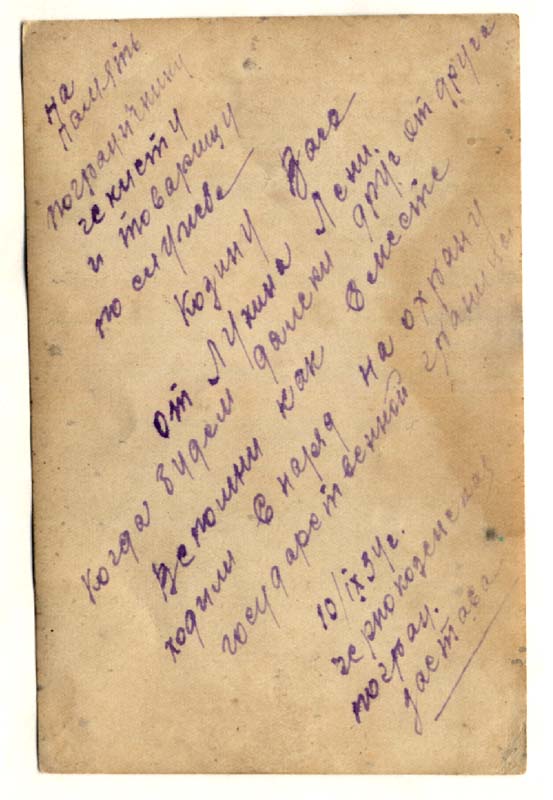 на
память
пограничнику
чекисту
и товарищу
по службе
Козину Васе
от Лукина Лени.
Когда будем далеки друг от друга
Вспомни как вместе
ходили в наряд на охрану
государственной границы
10/IX.34г.
погран.
застава